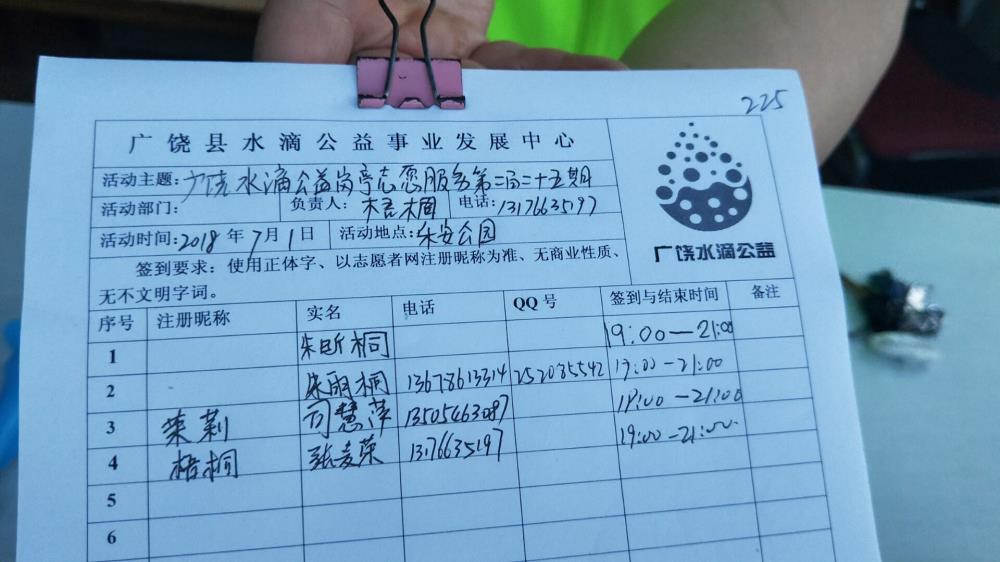 225
广饶县水滴公益事业发展中心
活动主题:广饶水滴公益岗亭志愿服务第二百二十五期
活动部门: 负责人: 梧桐 电话:13176635197
活动时间:2018年7月1日 活动地点:乐安公园
广饶水滴公益
签到要求：使用正体字、以志愿者网注册昵称为准、无商业性质、
无不文明字词。
序号 注册昵称 实名 电话 QQ号 签到与结束时间 备注
1 朱昕桐 19:00—21:00
2 朱雨桐 13678613314 252085542 19:00—21:00
3 茉莉 司慧萍 13505463087 19:00—21:00
4 梧桐 张爱荣 13176635197 19:00—21:00
5
6